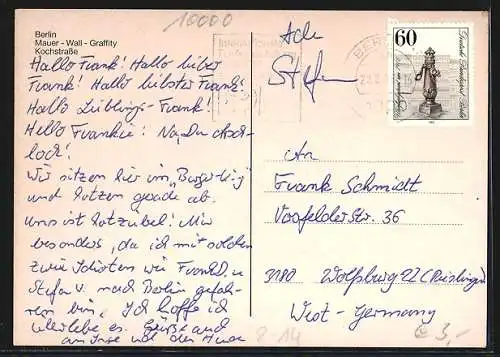 Berlin
Mauer - Wall - Graffity
Kochstraße
10000
Hallo Frank! Hallo lieber
Frank! Hallo liebster Frank!
Hallo Lieblings-Frank!
Hello Frankie! Na, Du Arsch-
loch!
Wir sitzen hier im "Burger King"
und kotzen gerade ab.
Uns ist kotzübel! Mir
besonders, da ich mit solchen
zwei Idioten wie Frank D. u
Stefan v. nach Berlin gefah-
ren bin. Ich hoffe ich
überlebe es. Grüße and
Ade
Stefan
BERLIN
60
Deutsche Bundespost Berlin
An
Frank Schmidt
Vorsfelderstr. 36
3180 Wolfsburg 22 (Reislingen)
West-Germany
€ 3,-